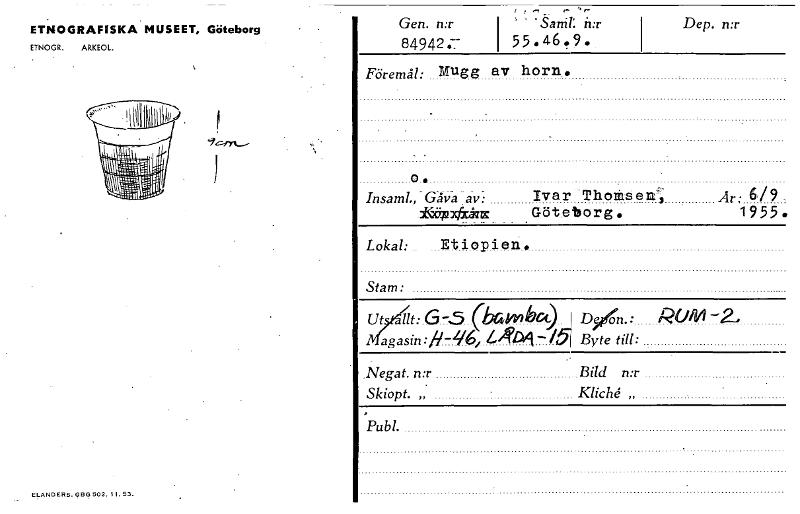 ETNOGRAFISKA MUSEET, Göteborg
ETNOGR. ARKEOL.
9cm
ELANDERS. GBG 502. 11. 53.
Gen. n:r Saml. n:r Dep. n:r
84942.- 55.46.9.
Föremål: Mugg av horn.
o.
Insaml., Gåva av: Ivar Thomsen, År: 6/9
Köpt från Göteborg. 1955.
Lokal: Etiopien.
Stam:
Utställt: G-S (bamba) Depon.: RUM-2
Magasin: H-46, LÅDA-15 Byte till:
Negat. n:r Bild n:r
Skiopt. „ Kliché „
Publ.